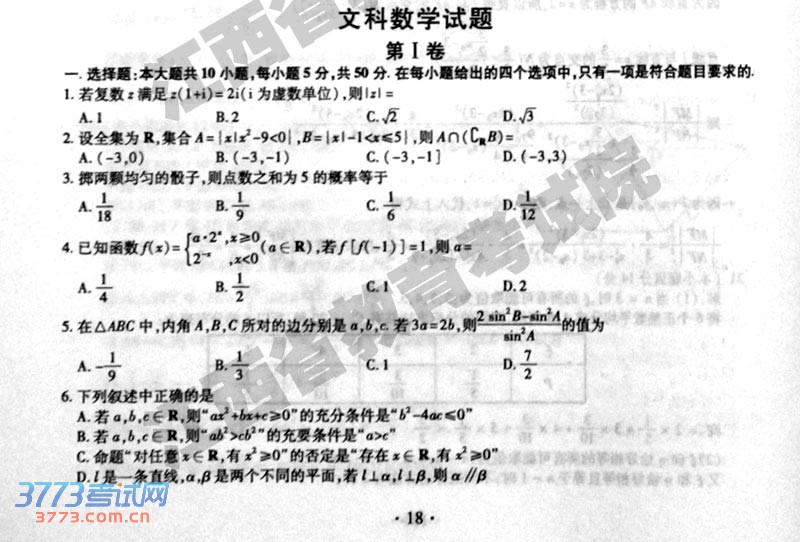 文科数学试题
第Ⅰ卷
一. 选择题:本大题共10小题,每小题5分,共50分. 在每小题给出的四个选项中,只有一项是符合题目要求的.
1. 若复数z满足z(1+i)=2i(i为虚数单位),则|z|=
A. 1 B. 2 C. √2 D. √3
2. 设全集为R,集合A={x|x²-9<0},B={x|-1<x≤5},则A∩(∁RB)=
A. (-3,0) B. (-3,-1) C. (-3,-1] D. (-3,3)
3. 掷两颗均匀的骰子,则点数之和为5的概率等于
A. 1/18 B. 1/9 C. 1/6 D. 1/12
4. 已知函数f(x)={a·2ˣ,x≥0 2⁻ˣ,x<0 (a∈R),若f[f(-1)]=1,则a=
A. 1/4 B. 1/2 C. 1 D. 2
5. 在△ABC中,内角A,B,C所对的边分别是a,b,c. 若3a=2b,则(2sin²B-sin²A)/sin²A的值为
A. -1/9 B. 1/3 C. 1 D. 7/2
6. 下列叙述中正确的是
A. 若a,b,c∈R,则“ax²+bx+c≥0”的充分条件是“b²-4ac≤0”
B. 若a,b,c∈R,则“ab²>cb²”的充要条件是“a>c”
C. 命题“对任意x∈R,有x²≥0”的否定是“存在x∈R,有x²≥0”
D. l是一条直线,α,β是两个不同的平面,若l⊥α,l⊥β,则α∥β
·18·
江西省教育考试院
江西省教育考试院
3773考试网
3773.com.cn